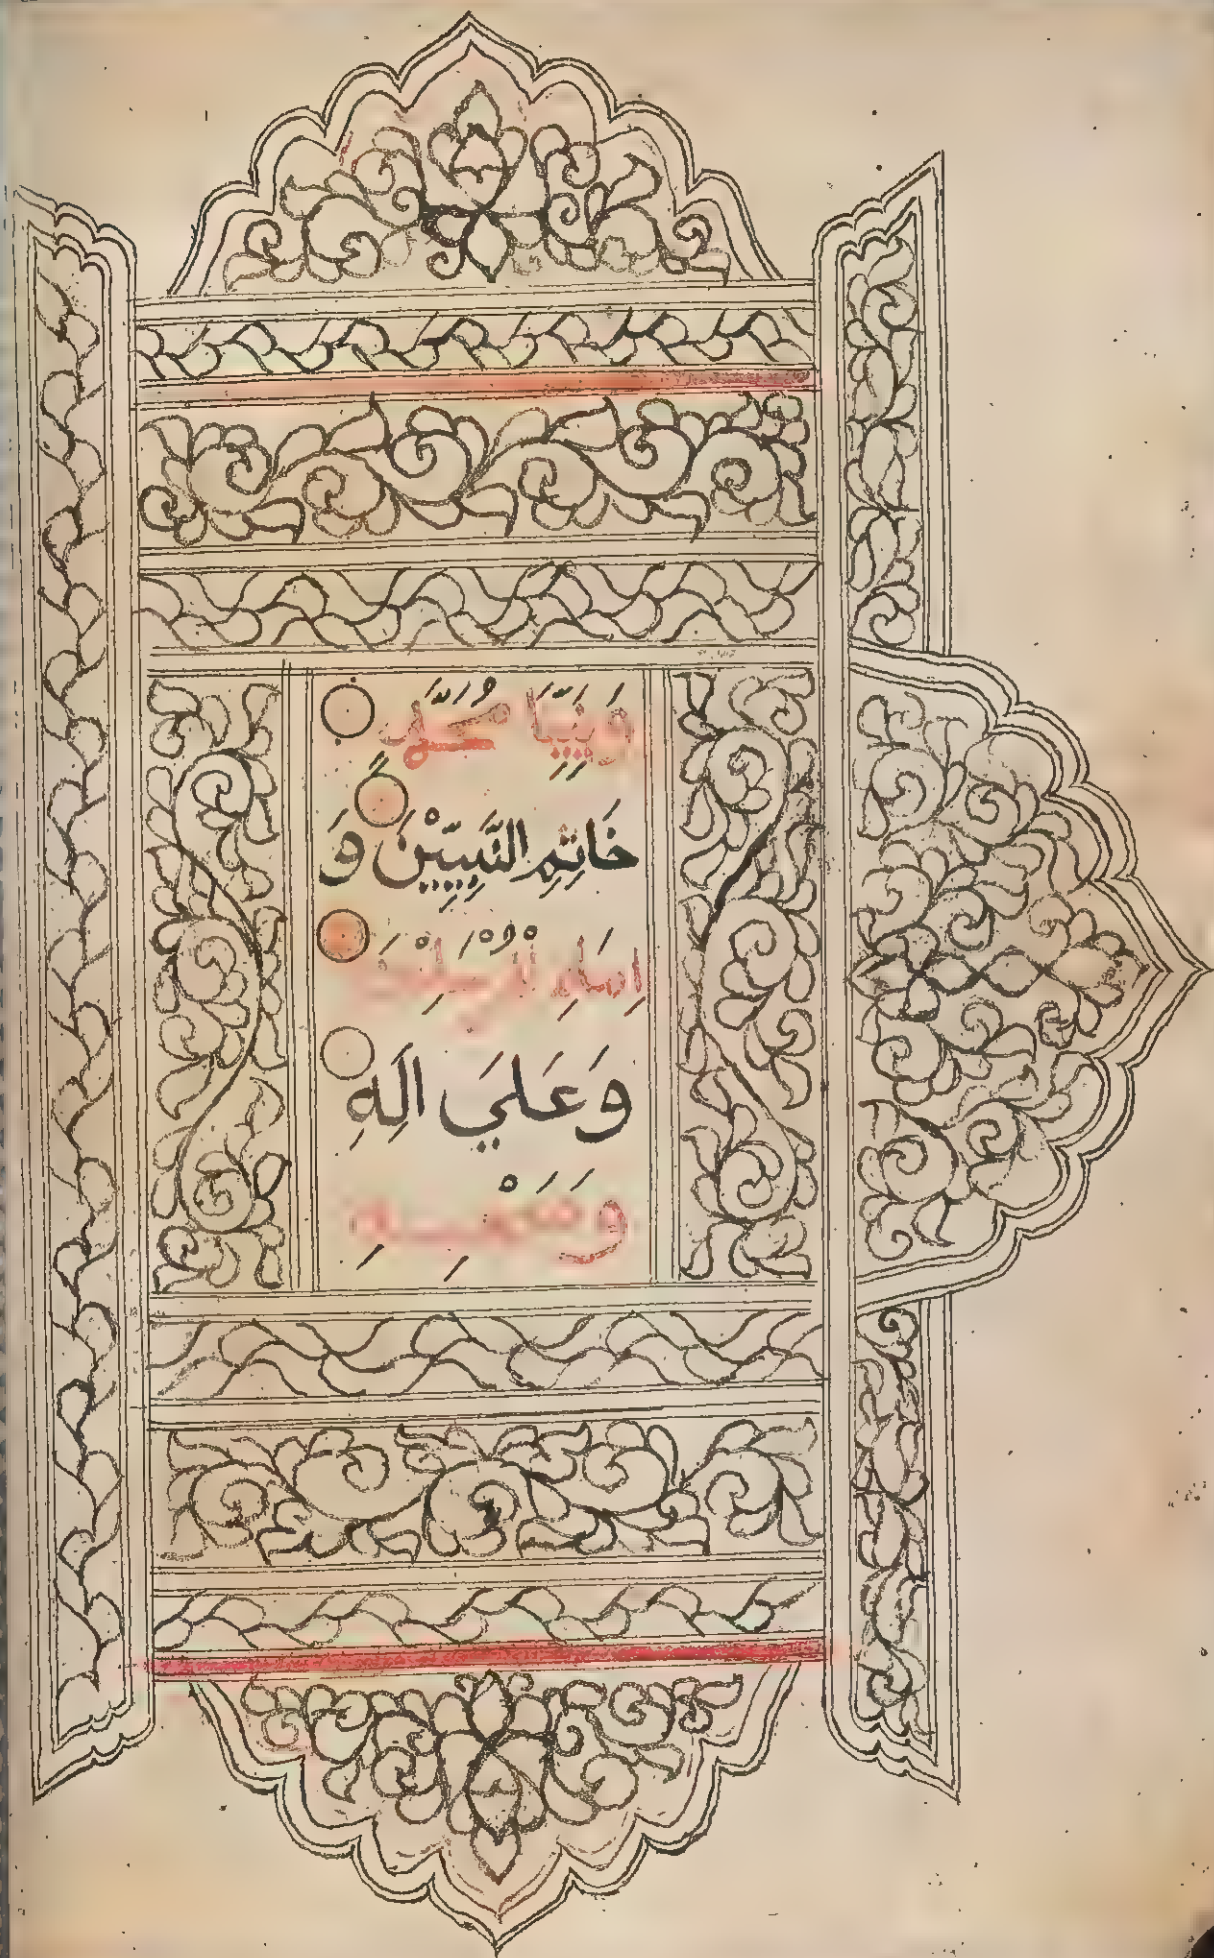 وَنَبِيِّنَا مُحَمَّدٍ
خَاتِمِ النَّبِيِّيْنَ وَ
اِمَامِ الْمُرْسَلِيْنَ
وَعَلَي اَلِهِ
وَصَحْبِهِ